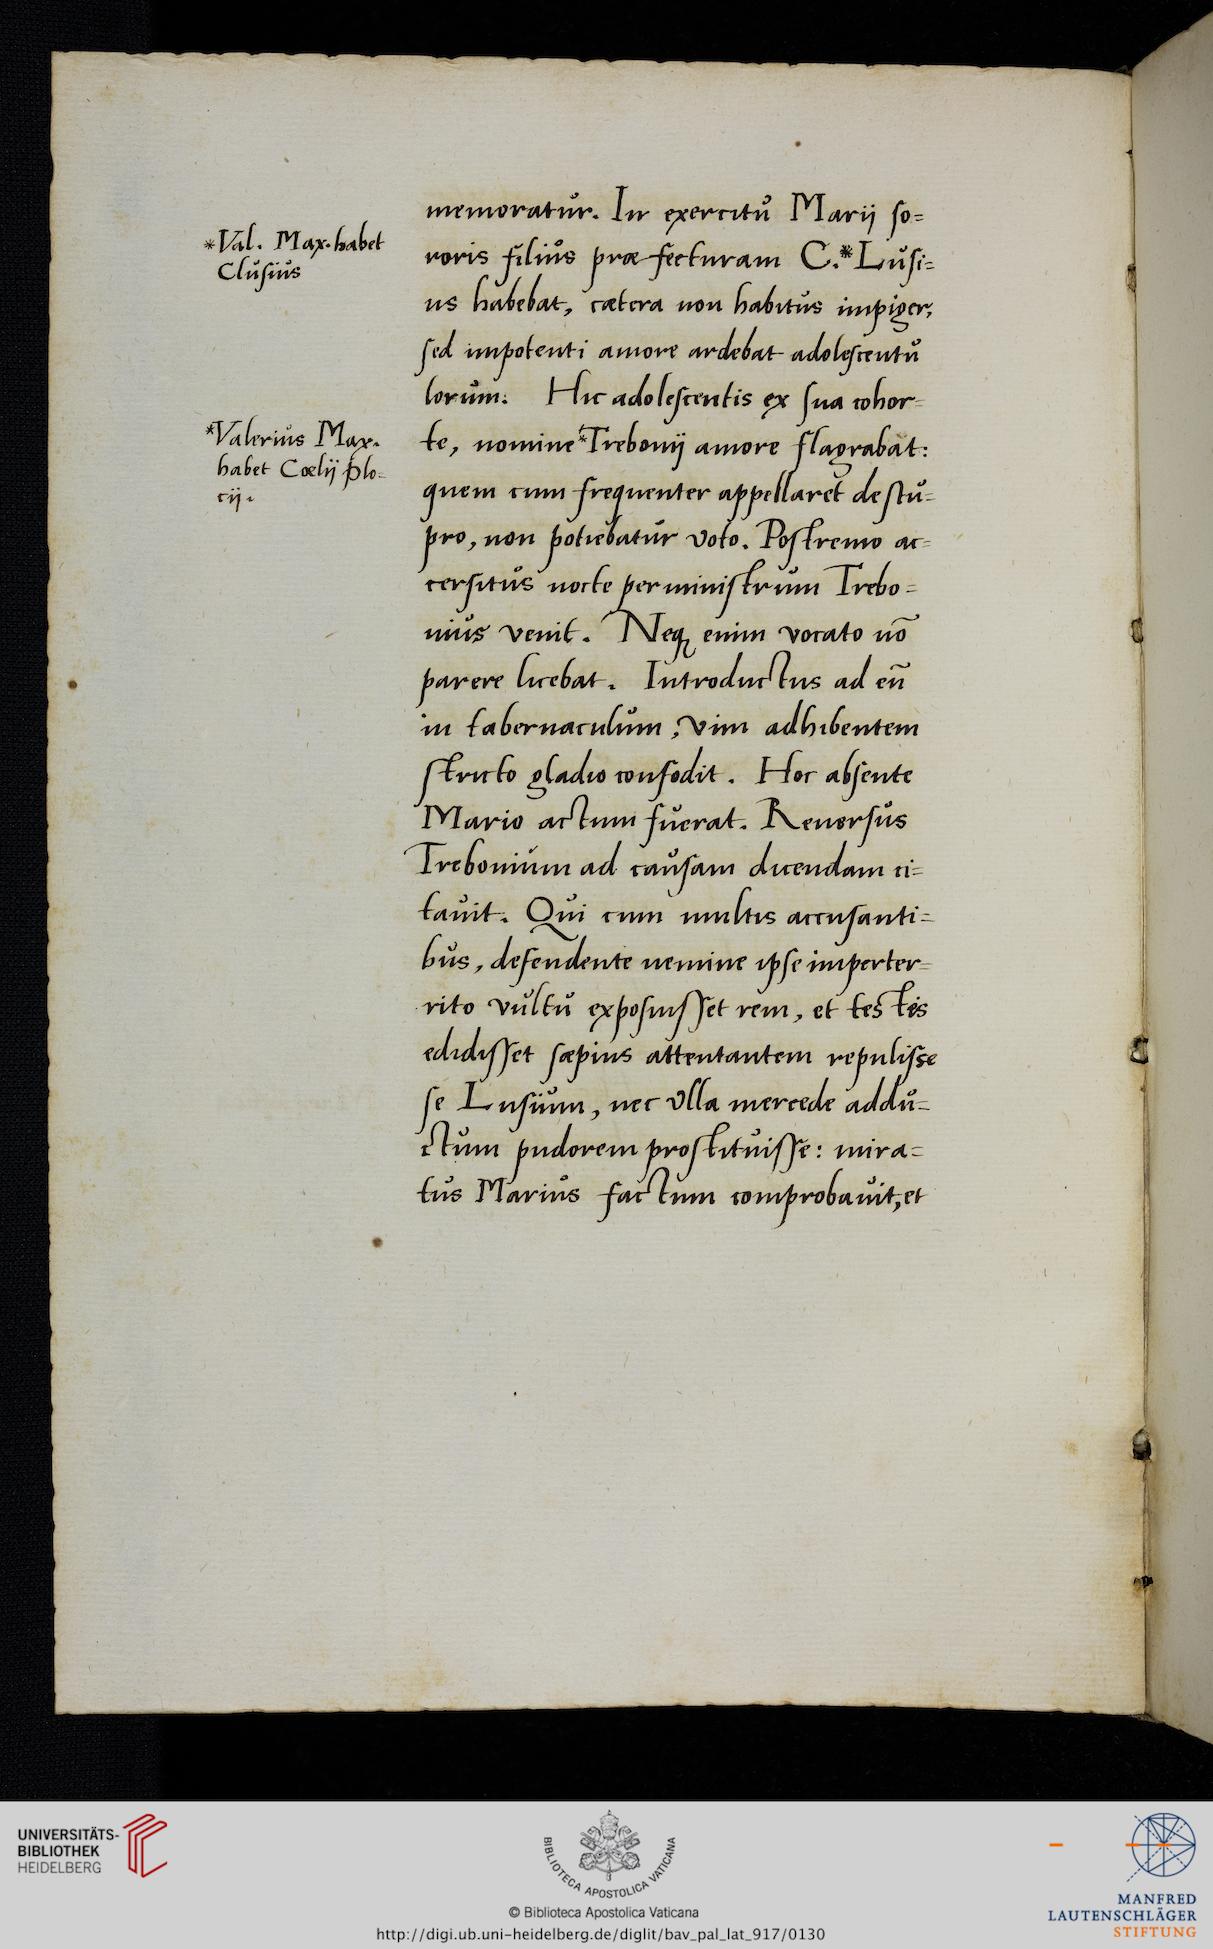 *Val. Max. habet
Clusius
*Valerius Max.
habet Cœlij Plo=
cij.
memoratur. In exercitu Marij so=
roris filius præfecturam C.* Lusi=
us habebat, cætera non habitus impiger,
sed impotenti amore ardebat adolescentu
lorum. Hic adolescentis ex sua cohor=
te, nomine *Trebonij amore flagrabat:
quem cum frequenter appellaret de stu=
pro, non potiebatur voto. Postremo ac=
cersitus nocte per ministrum Trebo=
nius venit. Neq; enim vocato nō
parere licebat. Introductus ad eū
in tabernaculum, vim adhibentem
stricto gladio confodit. Hoc absente
Mario actum fuerat. Reuersus
Trebonium ad causam dicendam ci=
tauit. Qui cum multis accusanti=
bus, defendente nemine ipse imperter=
rito vultu exposuisset rem, et testes
edidisset sæpius attentantem repulisse
se Lusium, nec vlla mercede addu=
ctum pudorem prostituisse: mira=
tus Marius factum comprobauit, et
UNIVERSITÄTS-
BIBLIOTHEK
HEIDELBERG
BIBLIOTECA APOSTOLICA VATICANA
© Biblioteca Apostolica Vaticana
http://digi.ub.uni-heidelberg.de/diglit/bav_pal_lat_917/0130
MANFRED
LAUTENSCHLÄGER
STIFTUNG